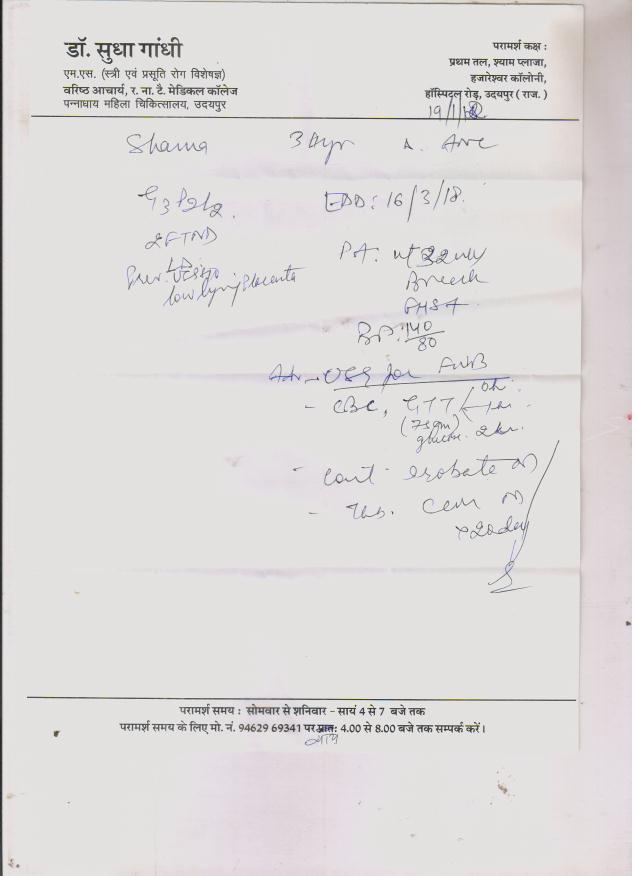 डॉ. सुधा गांधी
एम.एस. (स्त्री एवं प्रसूति रोग विशेषज्ञ)
वरिष्ठ आचार्य, र. ना. टै. मेडिकल कॉलेज
पन्नाधाय महिला चिकित्सालय, उदयपुर
परामर्श कक्ष :
प्रथम तल, श्याम प्लाजा,
हजारेश्वर कॉलोनी,
हॉस्पिटल रोड़, उदयपुर ( राज. )
19/1/18
G3P2L2
2FTND
low lying Placenta
EDD: 16/3/18.
PA:
Breech
FHS+
BP: 140/80
Adv - USG for FWB
- CBC, GTT
(75gm)
glucose 2hr.
- Cont.
- Tab.
x20day
परामर्श समय : सोमवार से शनिवार – सायं 4 से 7 बजे तक
परामर्श समय के लिए मो. नं. 94629 69341 पर प्रात: 4.00 से 8.00 बजे तक सम्पर्क करें।